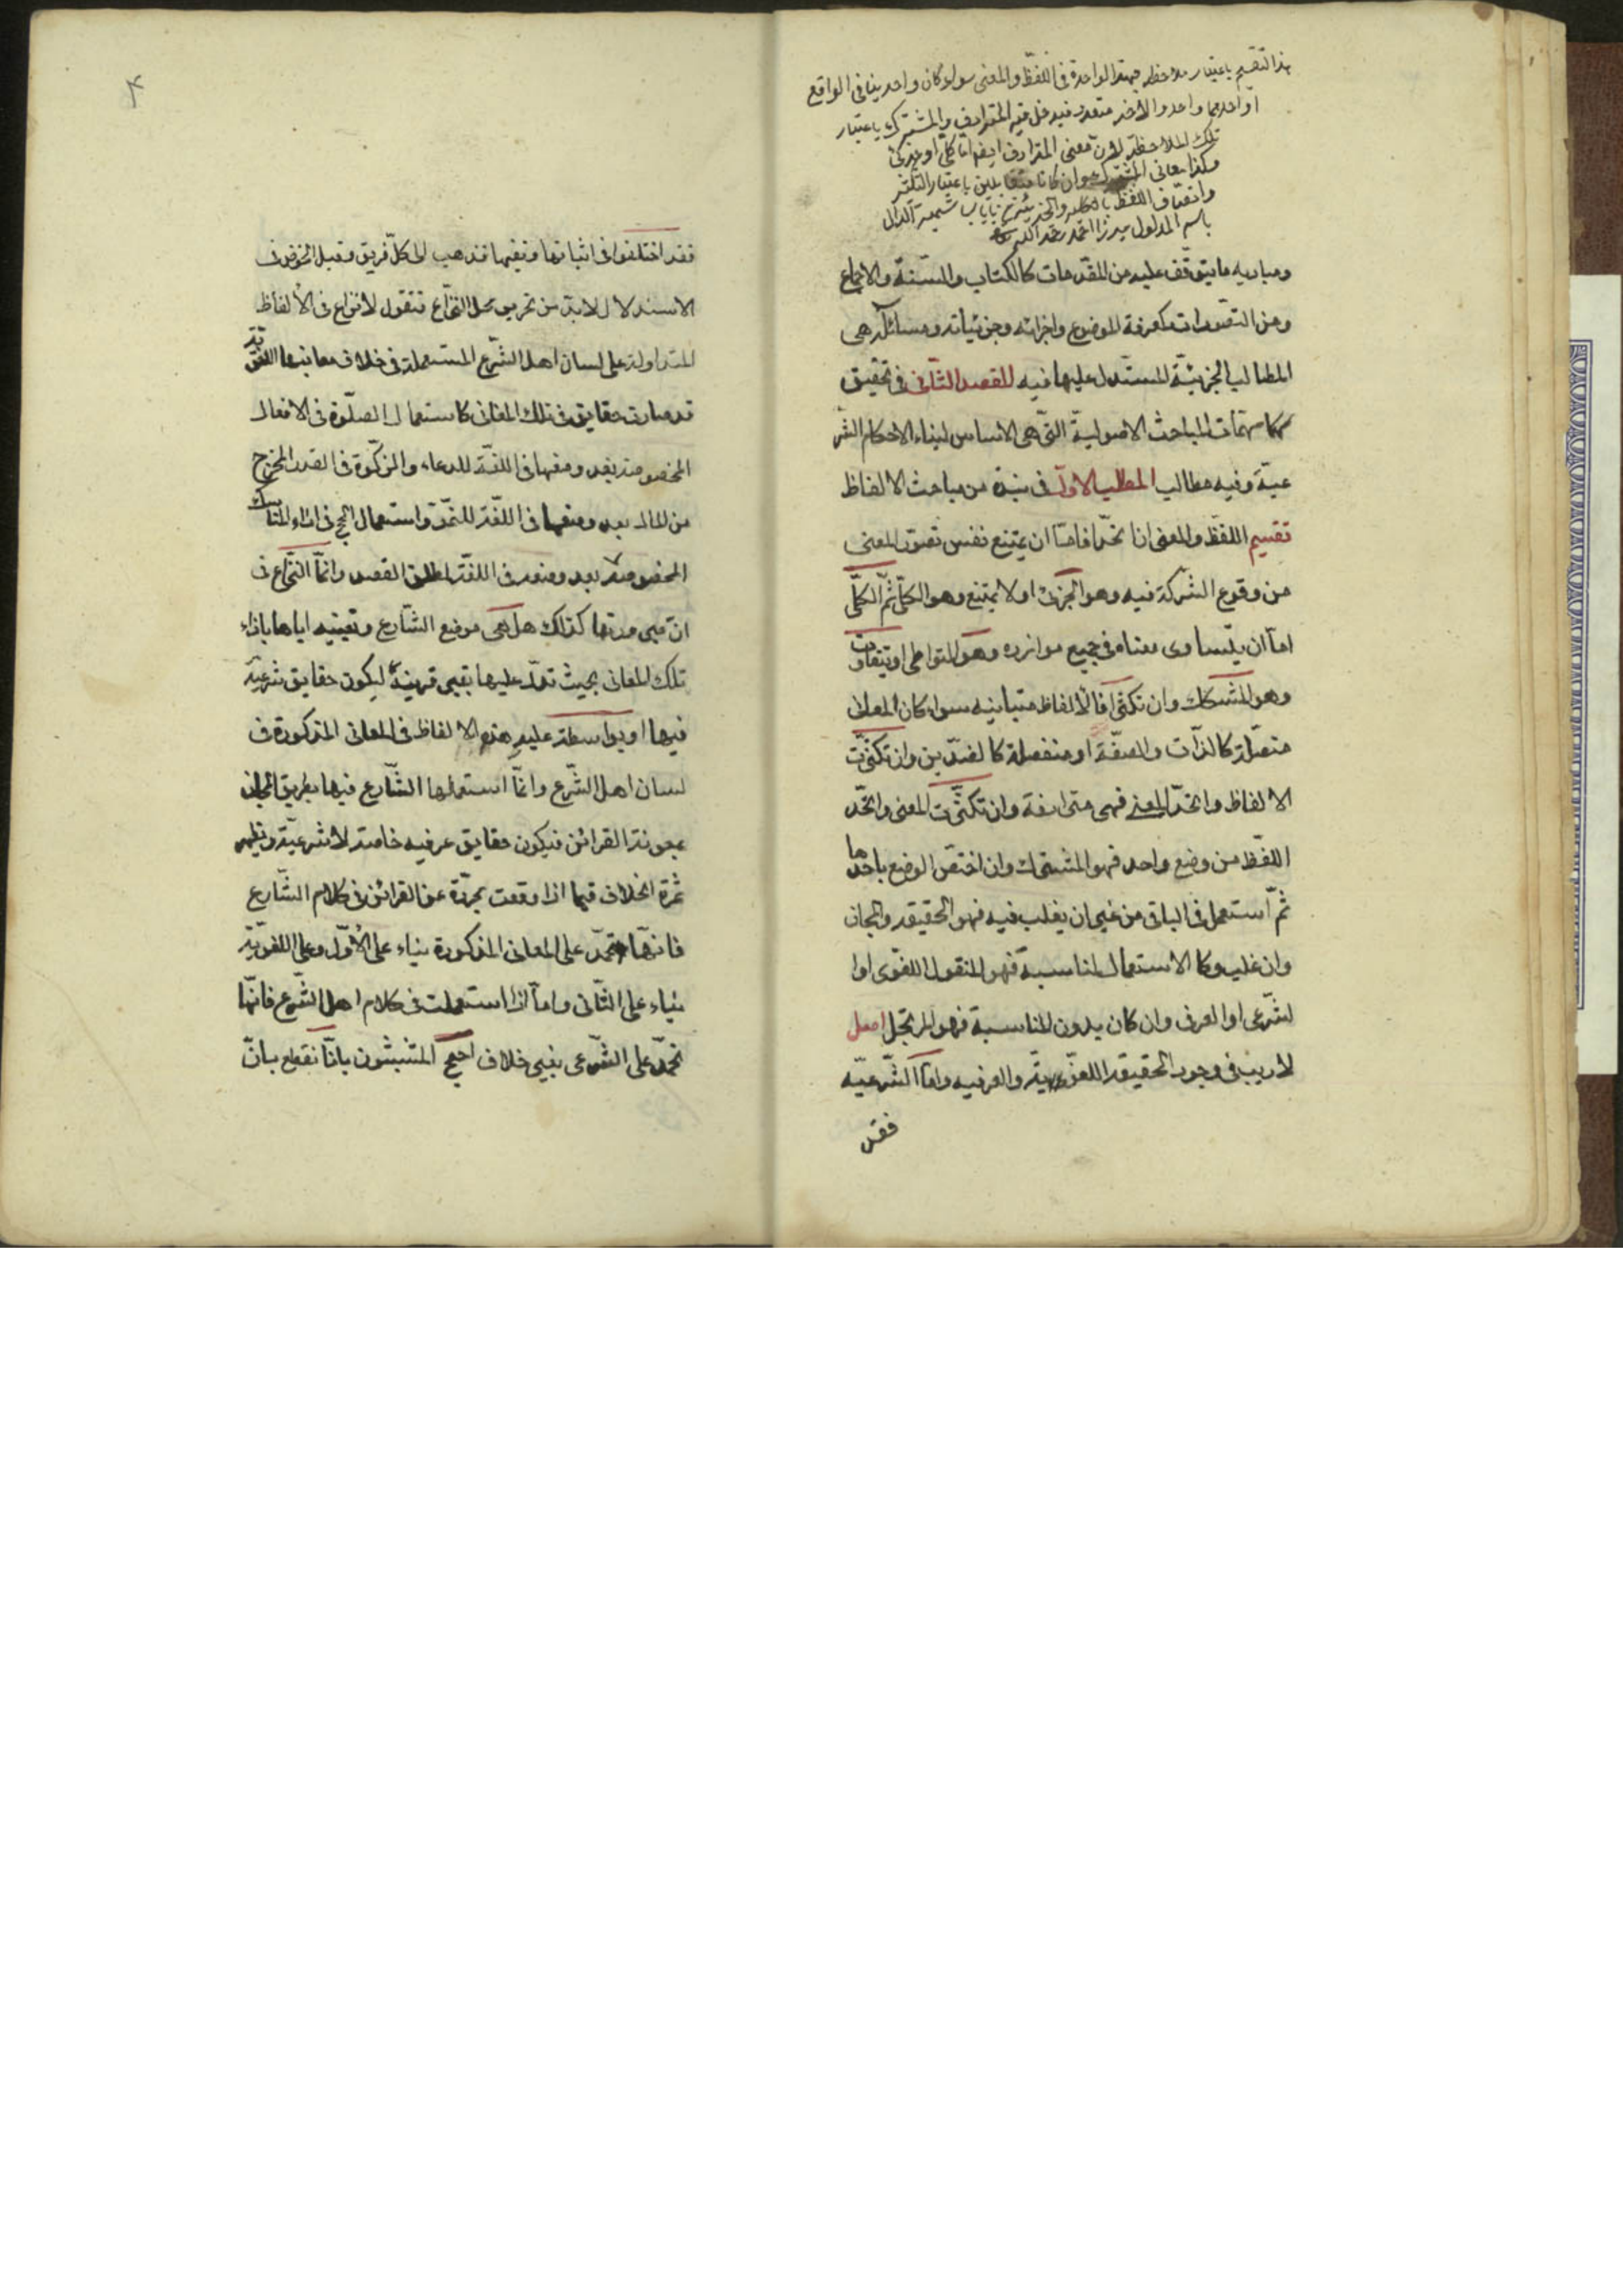 هذا التقسيم باعتبار ملاحظة جهة الواحدة فى اللفظ والمعنى سواء كان واحد ينافى الواقع
او احدهما واحد والاخر متعدد فيدخل فيه المترادف والمشترك باعتبار
تلك الملاحظة لان معنى المترادف ايضا اما كلى او جزئى
وهكذا معانى المشترك وان كانا متقابلين باعتبار التكثر
واتصاف اللفظ بالكلى والجزئى من باب تسمية الدال
باسم المدلول ميرزا احمد رحمه الله
ومباديه ما يتوقّف عليه من المقدمات كالكتاب والسّنة والاجماع
ومن التصورات كمعرفة الموضوع واجزائه وجزئياته ومسائله هى
المطالب الجزئيّة المستدل عليها فيه المقصد الثّانى فى تحقيق
مهمات المباحث الاصوليّة التّى هى الاساس لبناء الاحكام الشر
عيّة وفيه مطالب المطلب الاوّل فى نبذة من مباحث الالفاظ
تقسيم اللفظ والمعنى ان اتحدا فامّا ان يمتنع نفس تصوّر المعنى
من وقوع الشركة فيه وهو الجزئى او لا يمتنع وهو الكلّى ثمّ الكلّى
امّا ان يتساوى معناه فى جميع موارده وهو المتواطى او يتفاوت
وهو المشكك وان تكثّرا فالالفاظ متباينه سواء كان المعانى
متصلة كالذّات والصفّة او منفصلة كالضدّين وان تكثّرت
الالفاظ واتحدّ المعنى فهى مترادفة وان تكثّرت المعنى واتحّد
اللفظ من وضع واحد فهو المشترك وان اختصّ الوضع باحدها
ثمّ استعمل فى الباقى من غير ان يغلب فيه فهو الحقيقه والمجاز
وان غلب وكا الاستعمال لمناسبة فهو المنقول اللغوى اوا
لشّرعى او العرفى وان كان بدون المناسبة فهو المرتجل اصل
لا ريب فى وجود الحقيقه اللغوّية والعرفيه وامّا الشّرعيّه
فقد
۴
فقد اختلفوا فى اثباتها ونفيها فذهب الى كلّ فريق وقبل الخوض فى
الاستدلال لا بدّ من تحرير محل النّزاع فنقول لا نزاع فى الالفاظ
المتداولة على لسان اهل الشّرع المستعملة فى خلاف معانيها اللغوّية
قد صارت حقايق فى تلك المعانى كاستعمال الصلّوة فى الافعال
المخصوصة بعد وضعها فى اللغّة للدعاء والزكّوة فى القدر المخرج
من المال بعد وضعها فى اللغّة للنموّ واستعمال الحج فى اداء المناسك
المخصوصة بعد وضعه فى اللغّة لمطلق القصد وانمّا النّزاع فى
انّ صيرورتها كذلك هل هى بوضع الشّارع وتعيينه اياها بازاء
تلك المعانى بحيث تدلّ عليها بغير قرينة ليكون حقايق شرعيّة
فيها او بواسطة غلبة هذه الالفاظ فى المعانى المذكورة فى
لسان اهل الشّرع وانمّا استعملها الشّارع فيها بطريق المجاز
بمعونة القرائن فيكون حقايق عرفيه خاصة لا شرعيّة ويظهر
ثمرة الخلاف فيما اذا وقعت مجرّدة عن القرائن فى كلام الشّارع
فانهّا تحمل على المعانى المذكورة بناء على الاوّل وعلى اللغوّية
بناء على الثّانى وامّا اذا استعملت فى كلام اهل الشّرع فانهّا
تحمل على الشّرعى بغير خلاف احتج المثبتون بانّا نقطع بانّ